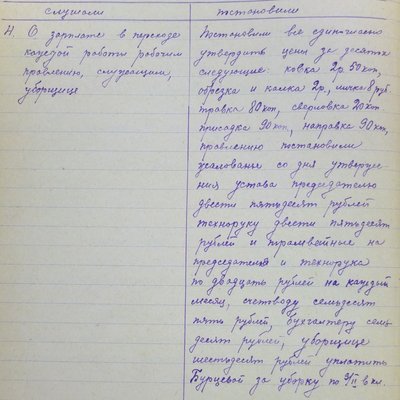 слушали
постановили
4. О зарплате в переходе
каждой работы рабочим
правлению, служащим,
уборщице
Постановили все единогласно
утвердить цены за десяток
следующие: ковка 2р. 50 коп,
обрезка и калка 2р,
травка 80 коп, сверловка 20 коп
присадка 90 коп, направка 90 коп,
правлению постановили
жалованье со дня утвержде
ния устава председателю
двести пятьдесят рублей
техноруку двести пятьдесят
рублей и трамвайные на
председателя и технорука
по двадцать рублей на каждый
месяц, счетводу семьдесят
пять рублей, бухгалтеру семь
десят рублей, уборщице
шестьдесят рублей уплатить
Бурцевой за уборку по 9/II вкл.